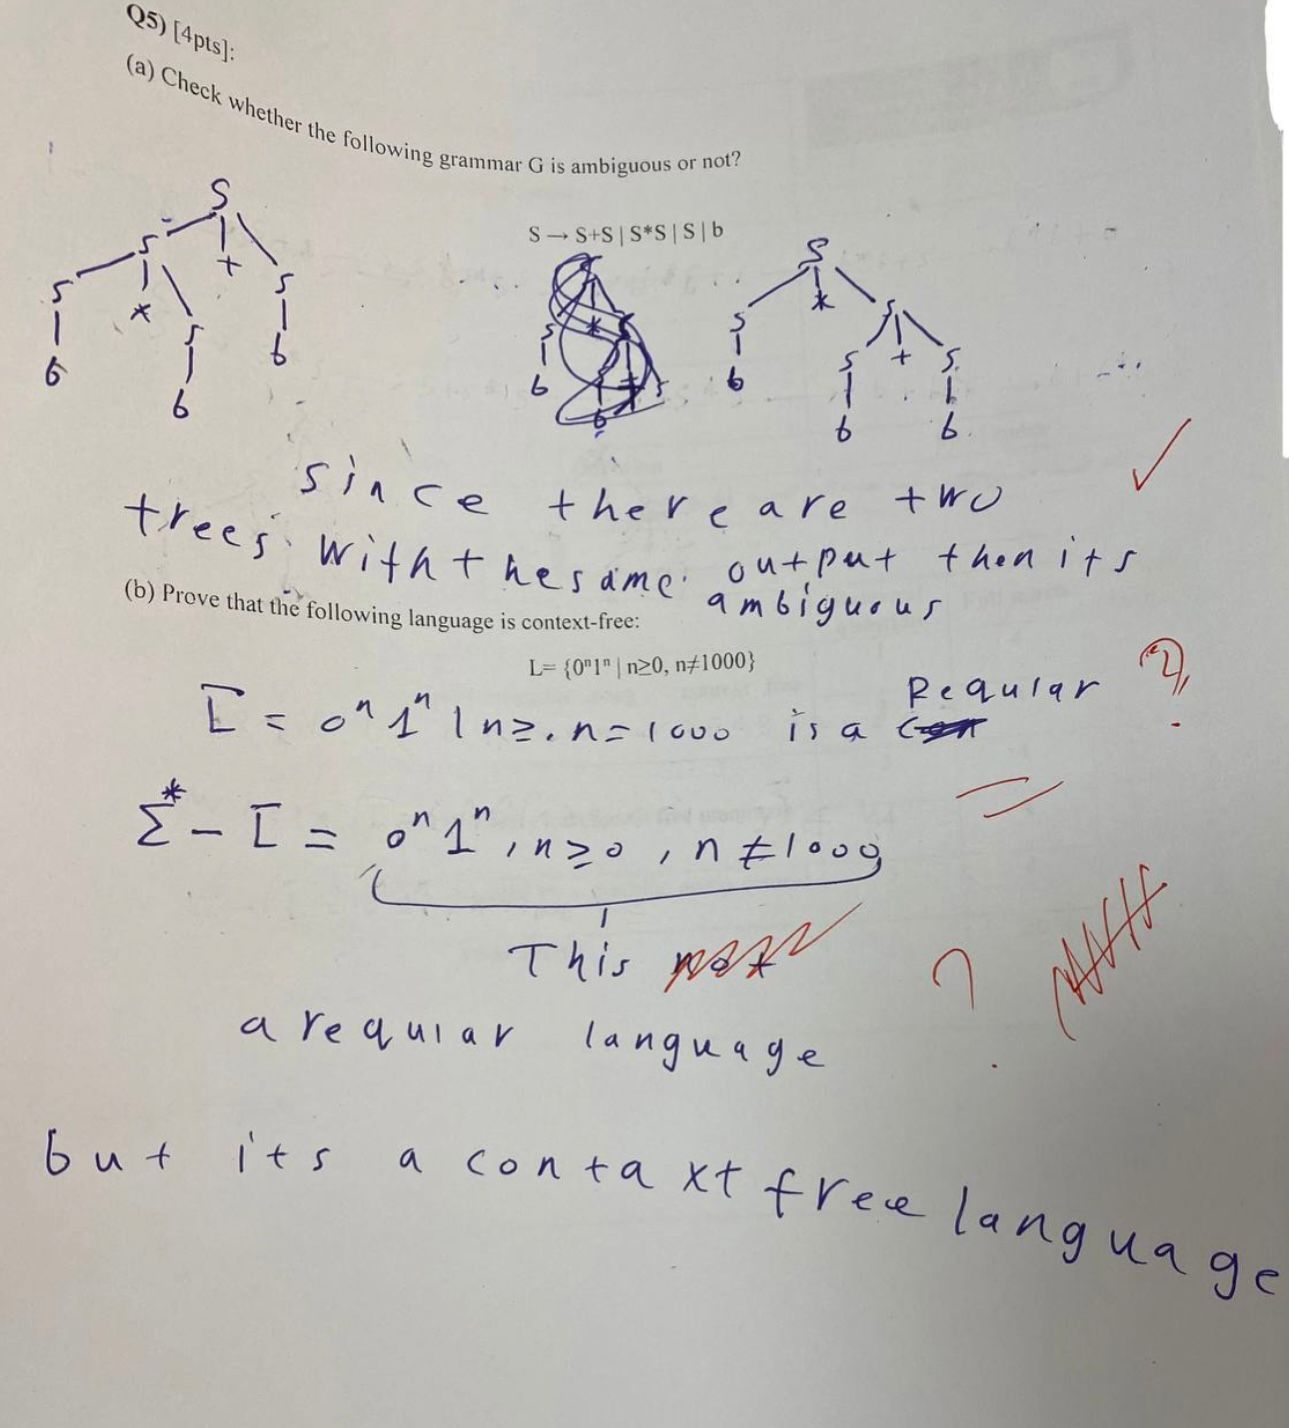 Q5) [4pts]:
(a) Check whether the following grammar G is ambiguous or not?
S → S+S | S*S | S | b
S
S + S
S * S b
b b
S
S * S
b S + S
b b
since there are two
trees with the same output then its
ambiguous
(b) Prove that the following language is context-free:
L= {0ⁿ1ⁿ | n≥0, n≠1000}
L̅ = 0ⁿ1ⁿ | n≥. n=1000 is a Regular
Σ* - L̅ = 0ⁿ1ⁿ, n≥0, n≠1000
This not
a regular language
but its a contaxt free language